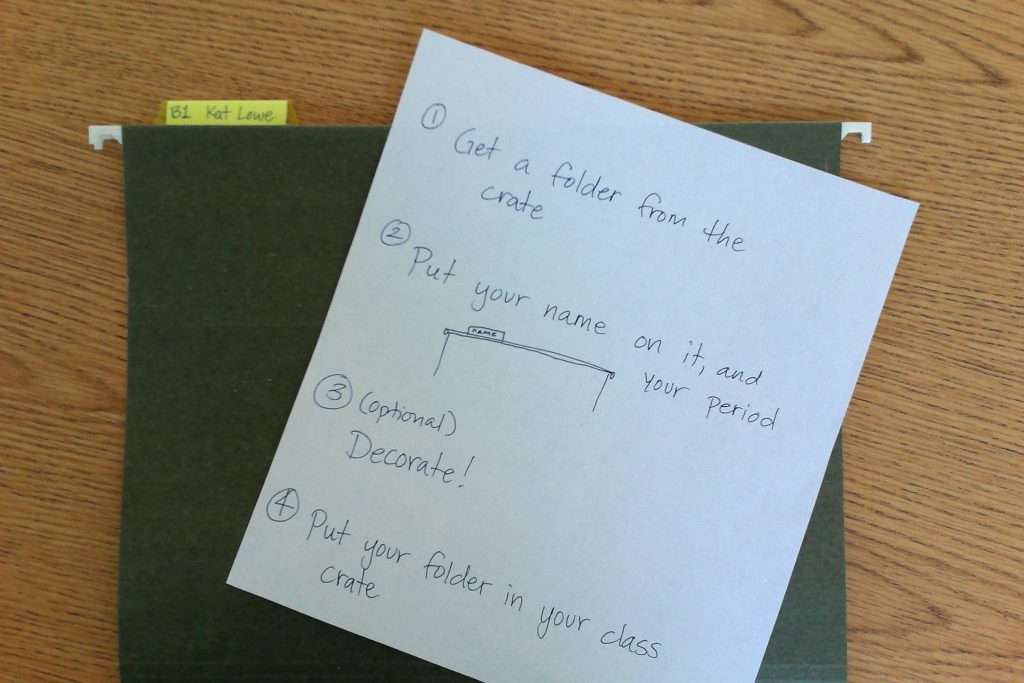 B1 Kat Lowe
1
Get a folder from the
crate
2
Put your name on it, and
your period
name
3 (optional)
Decorate!
4
Put your folder in your class
crate